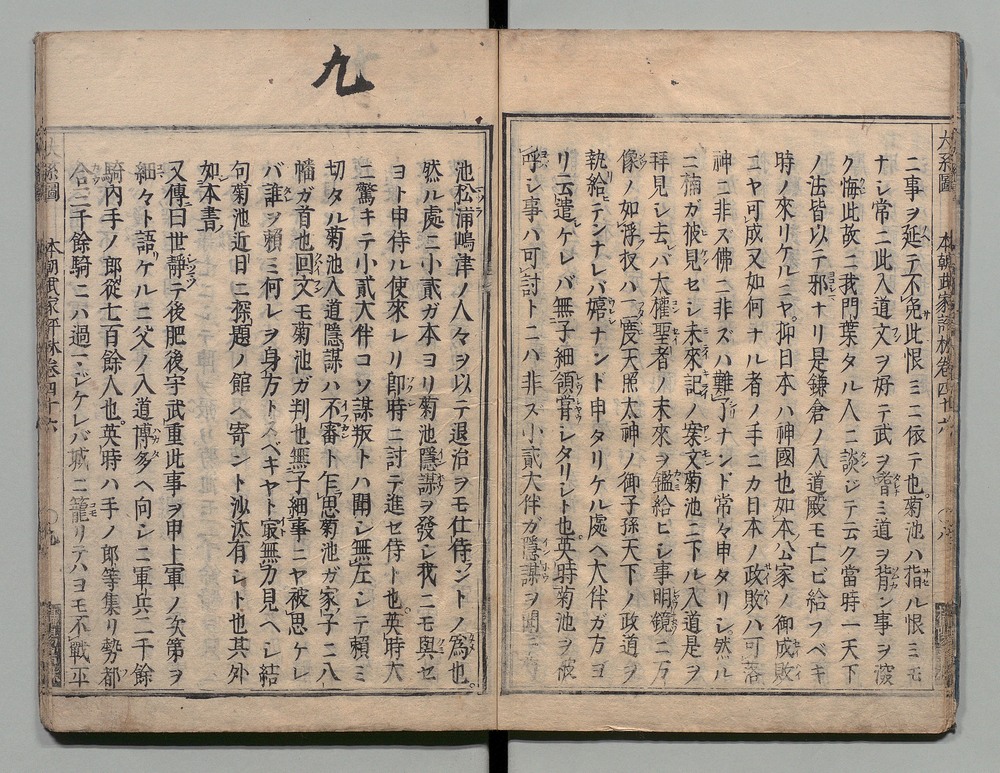 大系圖 本朝武家評林卷四十六 ○八
ニ事ヲ延テ不免此恨ミニ依テ也菊池ハ指ル恨ミモ
ナシ常ニ此入道文ヲ好テ武ヲ嗜ミ道ヲ背ン事ヲ深
ク悔此故ニ我門葉タル人ニ談ジテ云ク當時一天下
ノ法皆以テ邪ナリ是鎌倉ノ入道殿モ亡ビ給フベキ
時ノ來リケルニヤ抑日本ハ神國也如本公家ノ御成敗
ニヤ可成又如何ナル者ノ手ニカ日本ノ政敗ハ可落
神ニ非ズ佛ニ非ズハ難了ナンド常々申タリシ然ル
ニ楠ガ彼見セシ未來記ノ案文菊池ニ下ル入道是ヲ
拜見シ去バ大權聖者ノ未來ヲ鑑給ヒシ事明鏡ニ万
像ノ如浮扨ハ一度天照太神ノ御子孫天下ノ政道ヲ
執給ヒテンナレバ嬉ナンド申タリケル處ヘ大伴ガ方ヨ
リ云遣レケレバ無子細領掌シタリシト也英時菊池ヲ彼
呼シ事ハ可討トニハ非ス小貳大伴ガ隱謀ヲ聞
九
池松浦嶋津ノ人々ヲ以テ退治ヲモ仕侍ントノ爲也
然ル處ニ小貳ガ本ヨリ菊池隱謀ヲ發シ我ニモ與セ
ヨト申侍ル使來レリ即時ニ討テ進セ侍ト也英時大
ニ驚キテ小貳大伴コソ謀叛トハ聞シ無左シテ賴ミ
切タル菊池入道隱謀ハ不審ト乍思菊池ガ家ノ子二八
幡ガ首也回文モ菊池ガ判也無子細事ニヤ被思ケレ
バ誰ヲ賴ミ何レヲ身方トスベキヤト寂無力見ヘシ結
句菊池近日ニ探題ノ館ヘ寄ント沙汰有シト也其外
如本書
又傳曰世靜テ後肥後守武重此事ヲ申上軍ノ次第ヲ
細々ト語ケルニ父ノ入道博多ヘ向シニ軍兵二千餘
騎内手ノ郎從七百餘人也英時ハ手ノ郎等集リ勢都
合三千餘騎ニハ過マジケレバ城ニ籠リテハヨモ不戰平
大系圖 本朝武家評林卷四十六 ○九